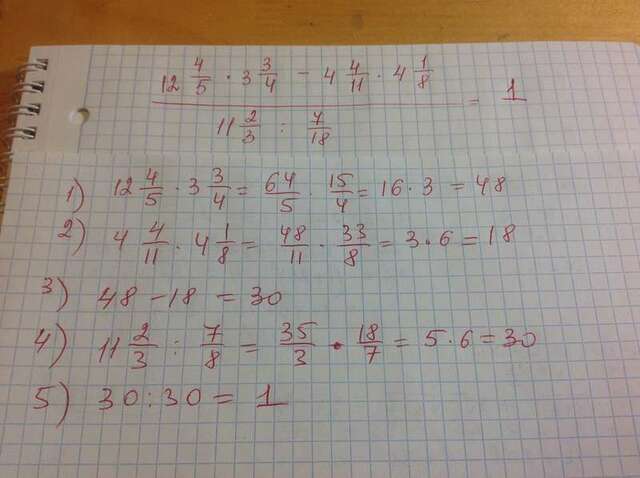 12 4/5 · 3 3/4 − 4 4/11 · 4 1/8
= 1
11 2/3 : 7/18
1) 12 4/5 · 3 3/4 = 64/5 · 15/4 = 16 · 3 = 48
2) 4 4/11 · 4 1/8 = 48/11 · 33/8 = 3 · 6 = 18
3) 48 − 18 = 30
4) 11 2/3 : 7/8 = 35/3 · 18/7 = 5 · 6 = 30
5) 30 : 30 = 1